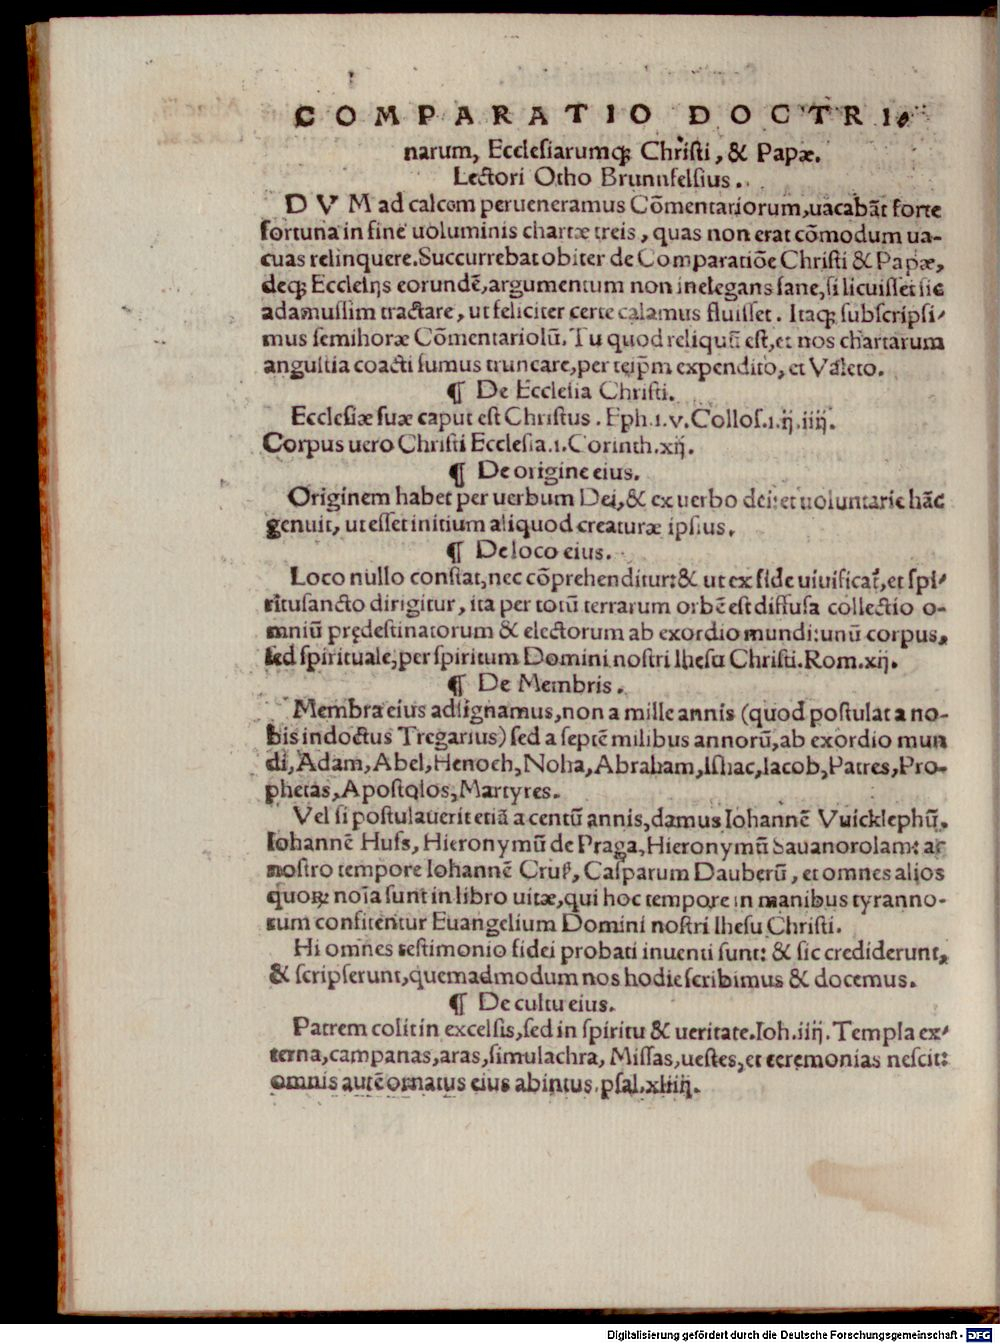 COMPARATIO DOCTRI-
narum, Ecclesiarumq; Christi, & Papæ.
Lectori Otho Brunnfelsius.
DVM ad calcem perueneramus Cōmentariorum, uacabāt forte
fortuna in fine uoluminis chartæ treis, quas non erat cōmodum ua-
cuas relinquere. Succurrebat obiter de Comparatiōe Christi & Papæ,
deq; Ecclesijs eorundē, argumentum non inelegans sane, si licuisset sic
adamussim tractare, ut feliciter certe calamus fluisset. Itaq; subscripsi-
mus semihoræ Cōmentariolū. Tu quod reliquū est, et nos chartarum
angustia coacti sumus truncare, per teip̄m expendito, et Valeto.
¶ De Ecclesia Christi.
Ecclesiæ suæ caput est Christus. Eph.1.v. Collos.1.ij.iiij.
Corpus uero Christi Ecclesia.1.Corinth.xij.
¶ De origine eius.
Originem habet per uerbum Dei, & ex uerbo dei: et uoluntarie hāc
genuit, ut esset initium aliquod creaturæ ipsius.
¶ De loco eius.
Loco nullo constat, nec cōprehenditur: & ut ex fide uiuificat̄, et spi-
ritusancto dirigitur, ita per totū terrarum orbē est diffusa collectio o-
mniū prędestinatorum & electorum ab exordio mundi: unū corpus,
sed spirituale, per spiritum Domini nostri Ihesu Christi. Rom.xij.
¶ De Membris.
Membra eius adsignamus, non a mille annis (quod postulat a no-
bis indoctus Tregarius) sed a septē milibus annorū, ab exordio mun
di, Adam, Abel, Henoch, Noha, Abraham, Ishac, Iacob, Patres, Pro-
phetas, Apostolos, Martyres.
Vel si postulauerit etiā a centū annis, damus Iohannē Vuicklephū.
Iohannē Huss, Hieronymū de Praga, Hieronymū Sauanorolam: ac
nostro tempore Iohannē Cruß, Casparum Dauberū, et omnes alios
quoꝝ noīa sunt in libro uitæ, qui hoc tempore in manibus tyranno-
rum confitentur Euangelium Domini nostri Ihesu Christi.
Hi omnes testimonio fidei probati inuenti sunt: & sic crediderunt,
& scripserunt, quemadmodum nos hodie scribimus & docemus.
¶ De cultu eius.
Patrem colit in excelsis, sed in spiritu & ueritate. Ioh.iiij. Templa ex-
terna, campanas, aras, simulachra, Missas, uestes, et ceremonias nescit:
omnis autē ornatus eius abintus. psal.xliiij.
Digitalisierung gefördert durch die Deutsche Forschungsgemeinschaft - DFG